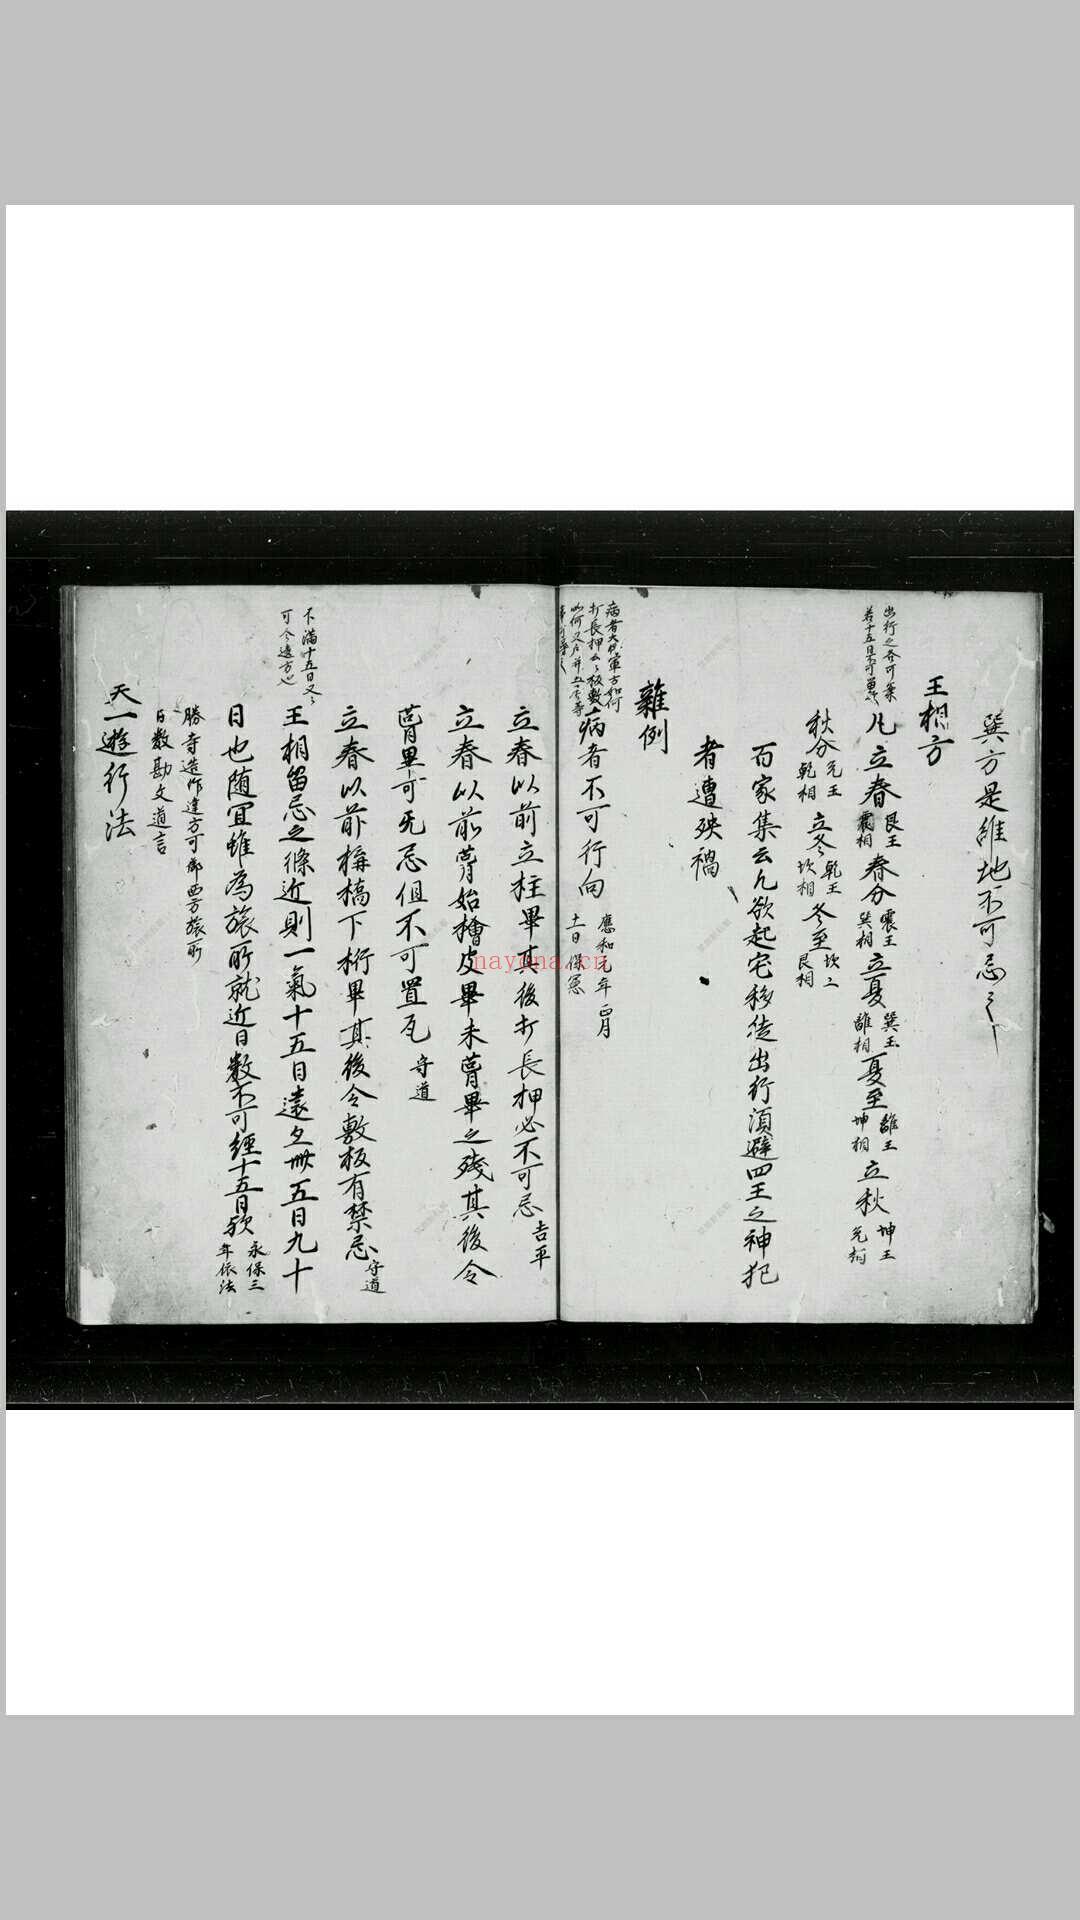 巽方是維地不可忌之
王相方
出行之各可案
若十五日不可
凡立春艮王震相春分震王巽相立夏巽王離相夏至離王坤相立秋坤王兌相
秋分兌王乾相立冬乾王坎相冬至坎々艮相
百家集云凡欲起宅移徙出行湏避四王之神犯
者遭殃禍
雜例
病者大将軍方如何
打長押云々板敷
如何又戸井
病者不可行向應和元年正月十一日保憲
立春以前立柱畢其後打長押必不可忌吉平
立春以前葺始檜皮畢未葺畢之殘其後令
葺畢可无忌但不可置瓦守道
立春以前構槁下桁畢其後令敷板有禁忌守道
不滿十五日又々
可令違方也
王相留忌之條近則一氣十五日遠又卌五日九十
日也随冝雖為旅所就近日數不可經十五日歟永保三年依法
勝寺造作違方可御西方旅所
日數勘文道言
天一遊行法
nayona.cn